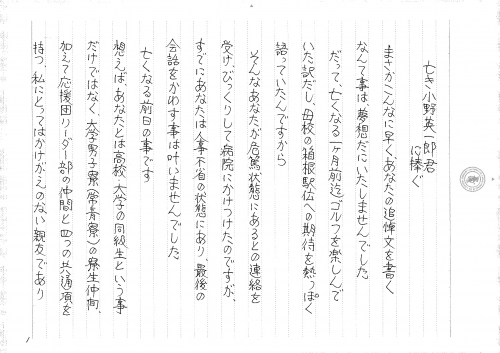 亡き小野英一郎君
に捧ぐ
まさかこんなに早く、あなたの追悼文を書く
なんて事は、夢想だにいたしませんでした
だって、亡くなる一ヶ月前迄ゴルフを楽しんで
いた訳だし、母校の箱根駅伝への期待を熱っぽく
語っていたんですから
そんなあなたが危篤状態にあるとの連絡を
受け、びっくりして病院にかけつけたのですが、
すでにあなたは人事不省の状態にあり、最後の
会話をかわす事は叶いませんでした
亡くなる前日の事です
想えば、あなたとは高校、大学の同級生という事
だけではなく、大学男子寮(常青寮)の寮生仲間、
加えて応援団リーダー部の仲間と四つの共通項を
持つ、私にとってはかけがえのない親友であり
1